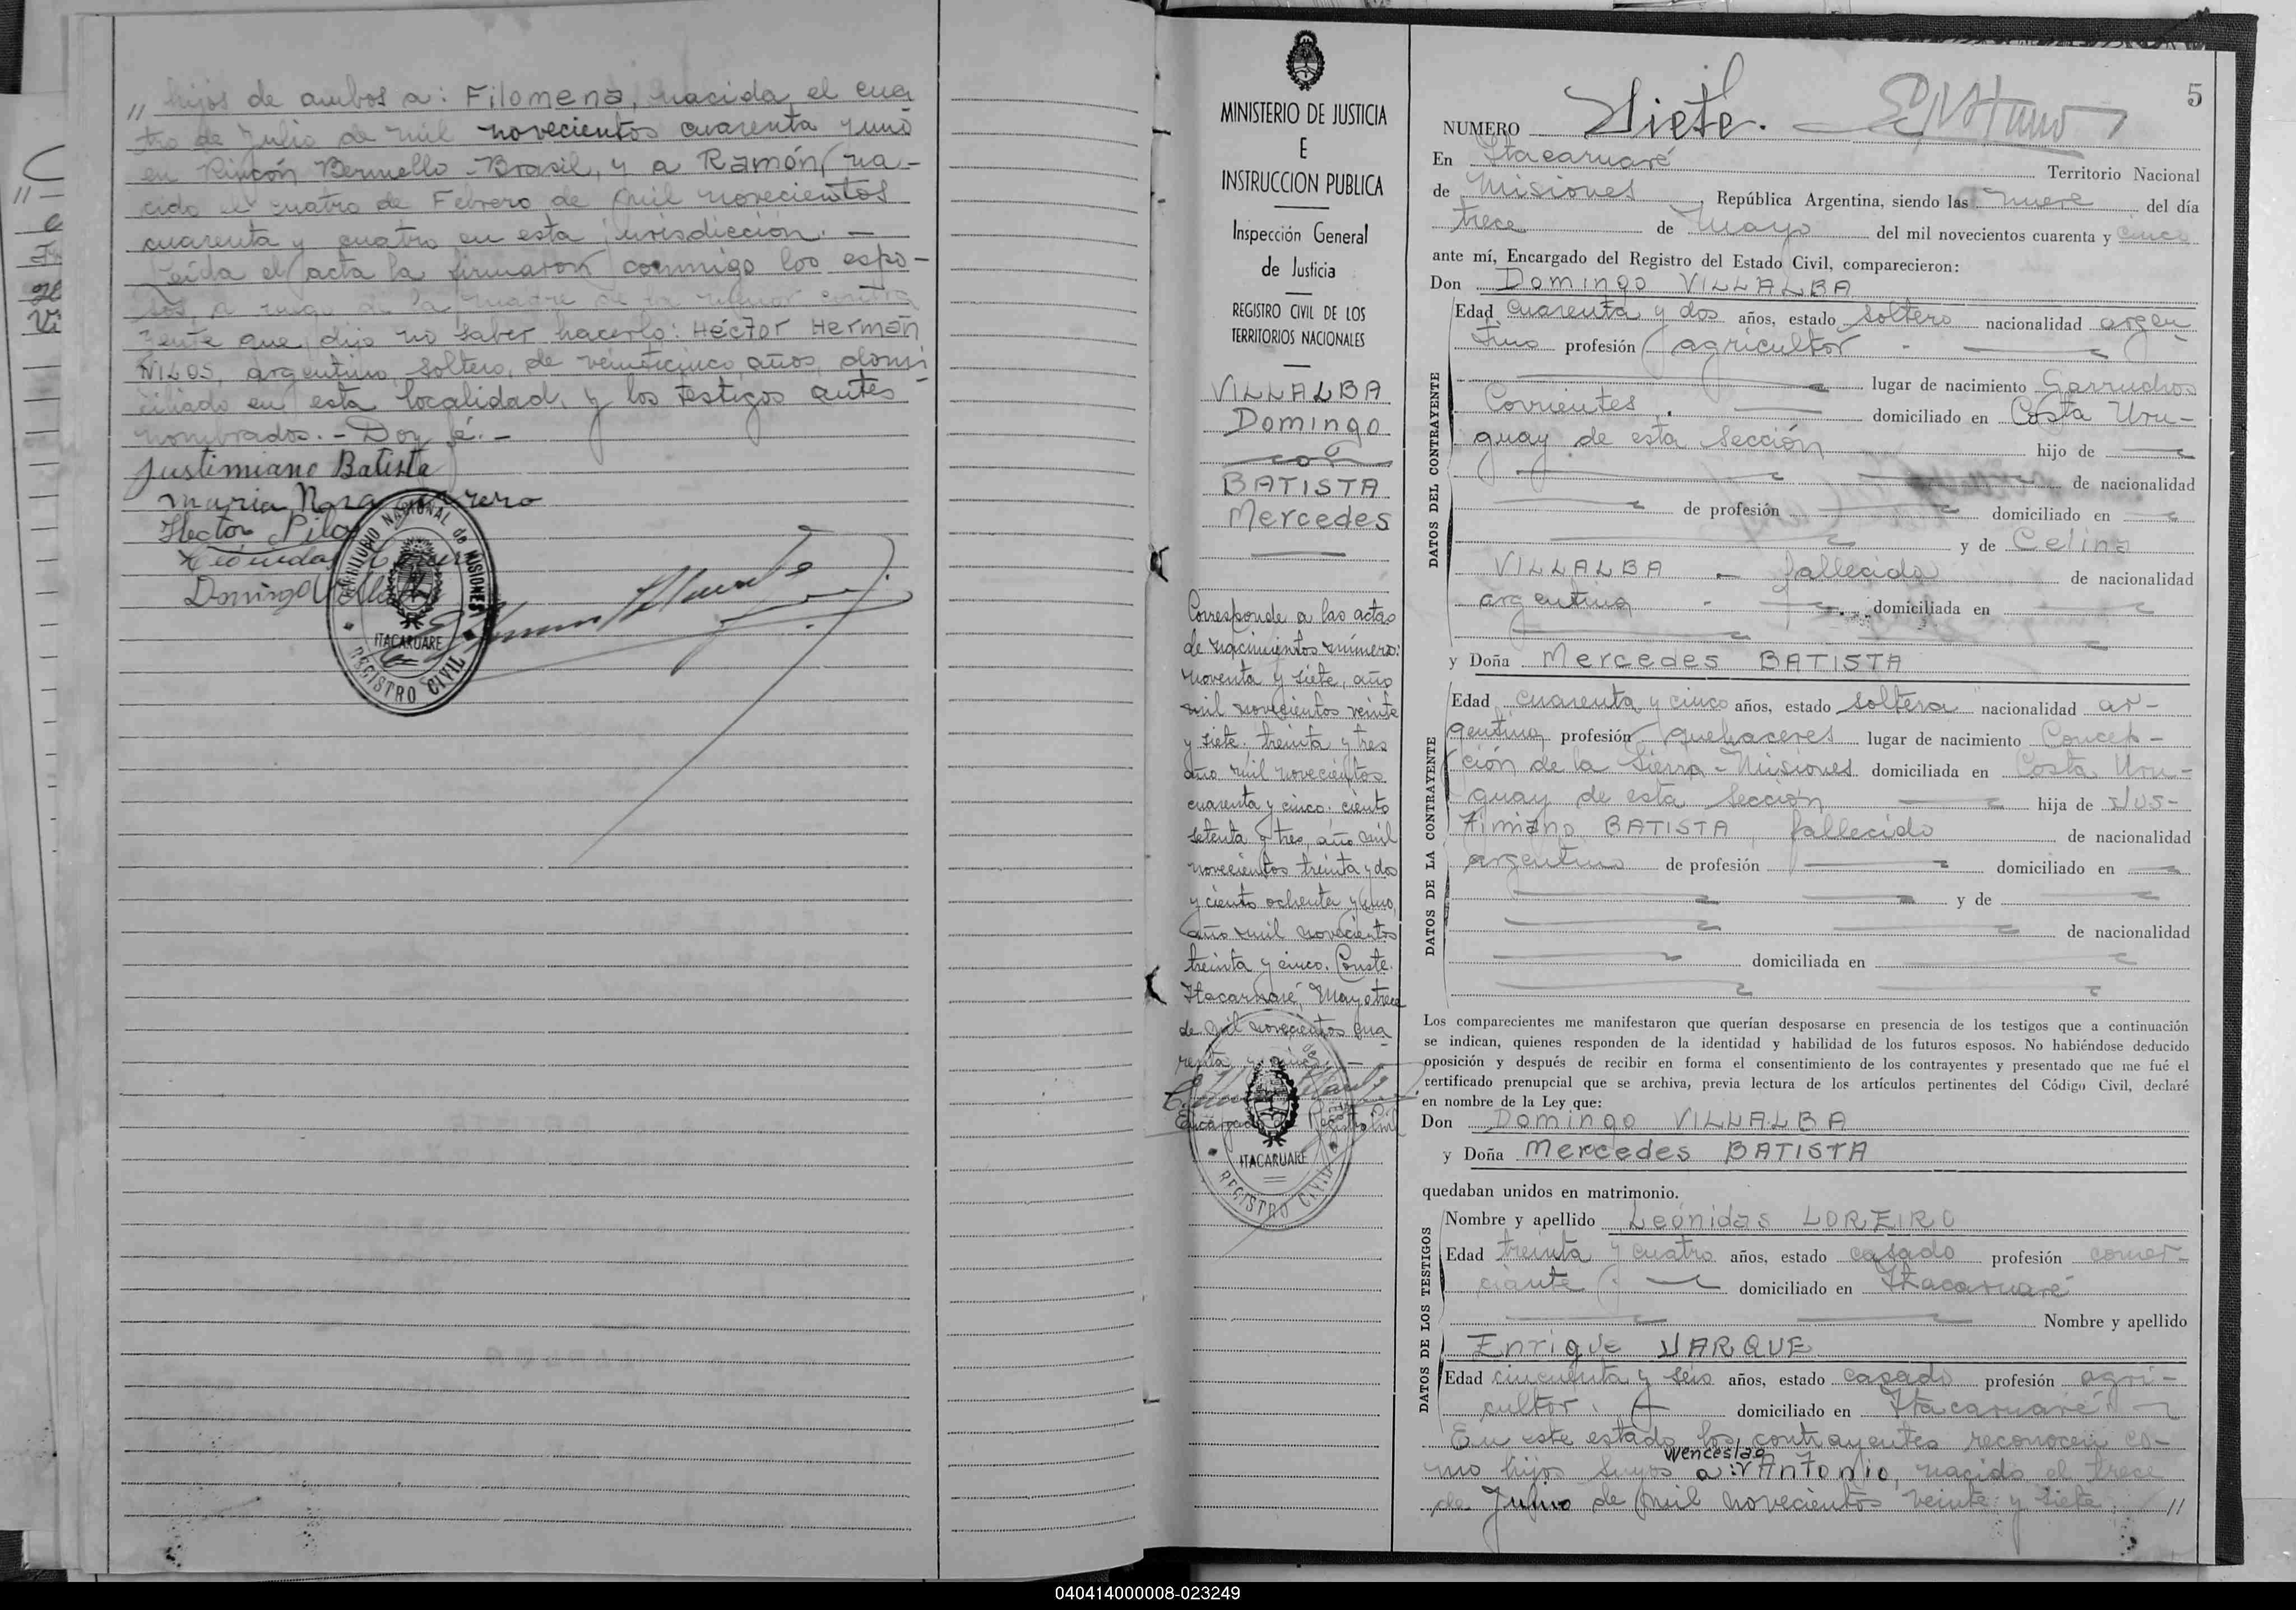 // hijos de ambos a: Filomena, nacida el cua
tro de Julio de mil novecientos cuarenta y uno
en Rincón Bermello - Brasil, y a Ramón, na-
cido el cuatro de Febrero de mil novecientos
cuarenta y cuatro en esta jurisdicción. -
Leída el acta la firmaron conmigo los espo-
sos, a ruego de la madre de la menor contra
yente que dijo no saber hacerlo: Héctor Hermán
argentino, soltero, de veinticinco años, domi
ciliado en esta localidad, y los testigos antes
nombrados. - Doy fé. -
Justimiano Batista
Maria
Hector
Domingo
TERRITORIO NACIONAL de MISIONES
ITACARUARE
REGISTRO CIVIL
MINISTERIO DE JUSTICIA
E
INSTRUCCION PUBLICA
Inspección General
de Justicia
REGISTRO CIVIL DE LOS
TERRITORIOS NACIONALES
VILLALBA
Domingo
con
BATISTA
Mercedes
Corresponde a las actas
de nacimientos número:
noventa y siete, año
mil novecientos veinte
y siete. treinta y tres
año mil novecientos
cuarenta y cinco. ciento
setenta y tres, año mil
novecientos treinta y dos
y ciento ochenta y uno,
año mil novecientos
treinta y cinco. Conste.
Itacaruaré, Mayo trece
de mil novecientos cua
renta y cinco. -
Encargado del Registro Civil
ITACARUARE
REGISTRO CIVIL
5
NUMERO Siete.
En Itacaruaré Territorio Nacional
de Misiones, República Argentina, siendo las nueve del día
trece de Mayo del mil novecientos cuarenta y cinco
ante mí, Encargado del Registro del Estado Civil, comparecieron:
Don Domingo VILLALBA
DATOS DEL CONTRAYENTE
Edad cuarenta y dos años, estado soltero nacionalidad argen
tino profesión agricultor -
lugar de nacimiento Garruchos
Corrientes. domiciliado en Costa Uru-
guay de esta Sección hijo de
de nacionalidad
de profesión domiciliado en
y de Celina
VILLALBA - fallecida de nacionalidad
argentina - domiciliada en
y Doña Mercedes BATISTA
DATOS DE LA CONTRAYENTE
Edad cuarenta y cinco años, estado soltera nacionalidad ar-
gentina profesión quehaceres lugar de nacimiento Concep-
ción de la Sierra - Misiones domiciliada en Costa Uru-
guay de esta Sección hija de Jus-
timiano BATISTA, fallecido de nacionalidad
argentino de profesión domiciliado en
y de
de nacionalidad
domiciliada en
Los comparecientes me manifestaron que querían desposarse en presencia de los testigos que a continuación
se indican, quienes responden de la identidad y habilidad de los futuros esposos. No habiéndose deducido
oposición y después de recibir en forma el consentimiento de los contrayentes y presentado que me fué el
certificado prenupcial que se archiva, previa lectura de los artículos pertinentes del Código Civil, declaré
en nombre de la Ley que:
Don Domingo VILLALBA
y Doña Mercedes BATISTA
quedaban unidos en matrimonio.
DATOS DE LOS TESTIGOS
Nombre y apellido Leónidas LOREIRO
Edad treinta y cuatro años, estado casado profesión comer-
ciante. domiciliado en Itacaruaré
Nombre y apellido
Enrique
Edad cincuenta y seis años, estado casado profesión agri-
cultor. domiciliado en Itacaruaré. -
En este estado los contrayentes reconocen co-
Wenceslao
mo hijos suyos a: Antonio, nacido el trece
de Junio de mil novecientos veinte y siete, //
040414000008-023249